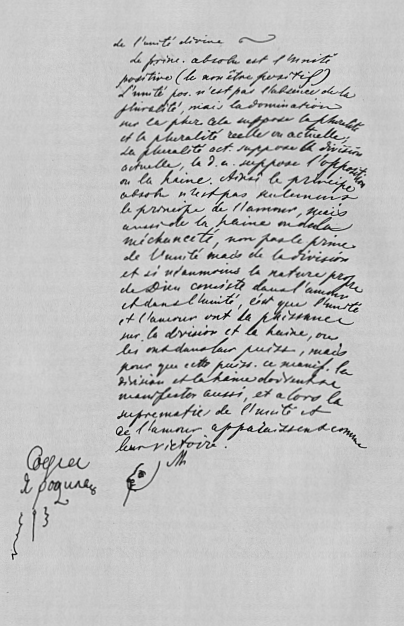 de l'unité divine
Le princ. absolu est l'unité
positive (le non être positif)
L'unité pos. n'est pas l'absence de la
pluralité, mais la domination
sur la plur. Cela suppose la pluralité
et la pluralité réelle ou actuelle,
La pluralité act. suppose la division
actuelle, la d. a. suppose l'opposition
ou la haine. Ainsi le principe
absolu n'est pas seulement
le principe de l'amour, mais
aussi de la haine ou de la
méchanceté, non pas le princ.
de l'unité mais de la division
et si néanmoins la nature propre
de Dieu consiste dans l'amour
et dans l'unité, c'est que l'unité
et l'amour ont la puissance
sur la division et la haine, ou
les ont dans leur puiss., mais
pour que cette puiss. se manif. la
division et la haine doivent se
manifester aussi, et alors la
suprématie de l'unité et
de l'amour apparaissent comme
leur victoire.